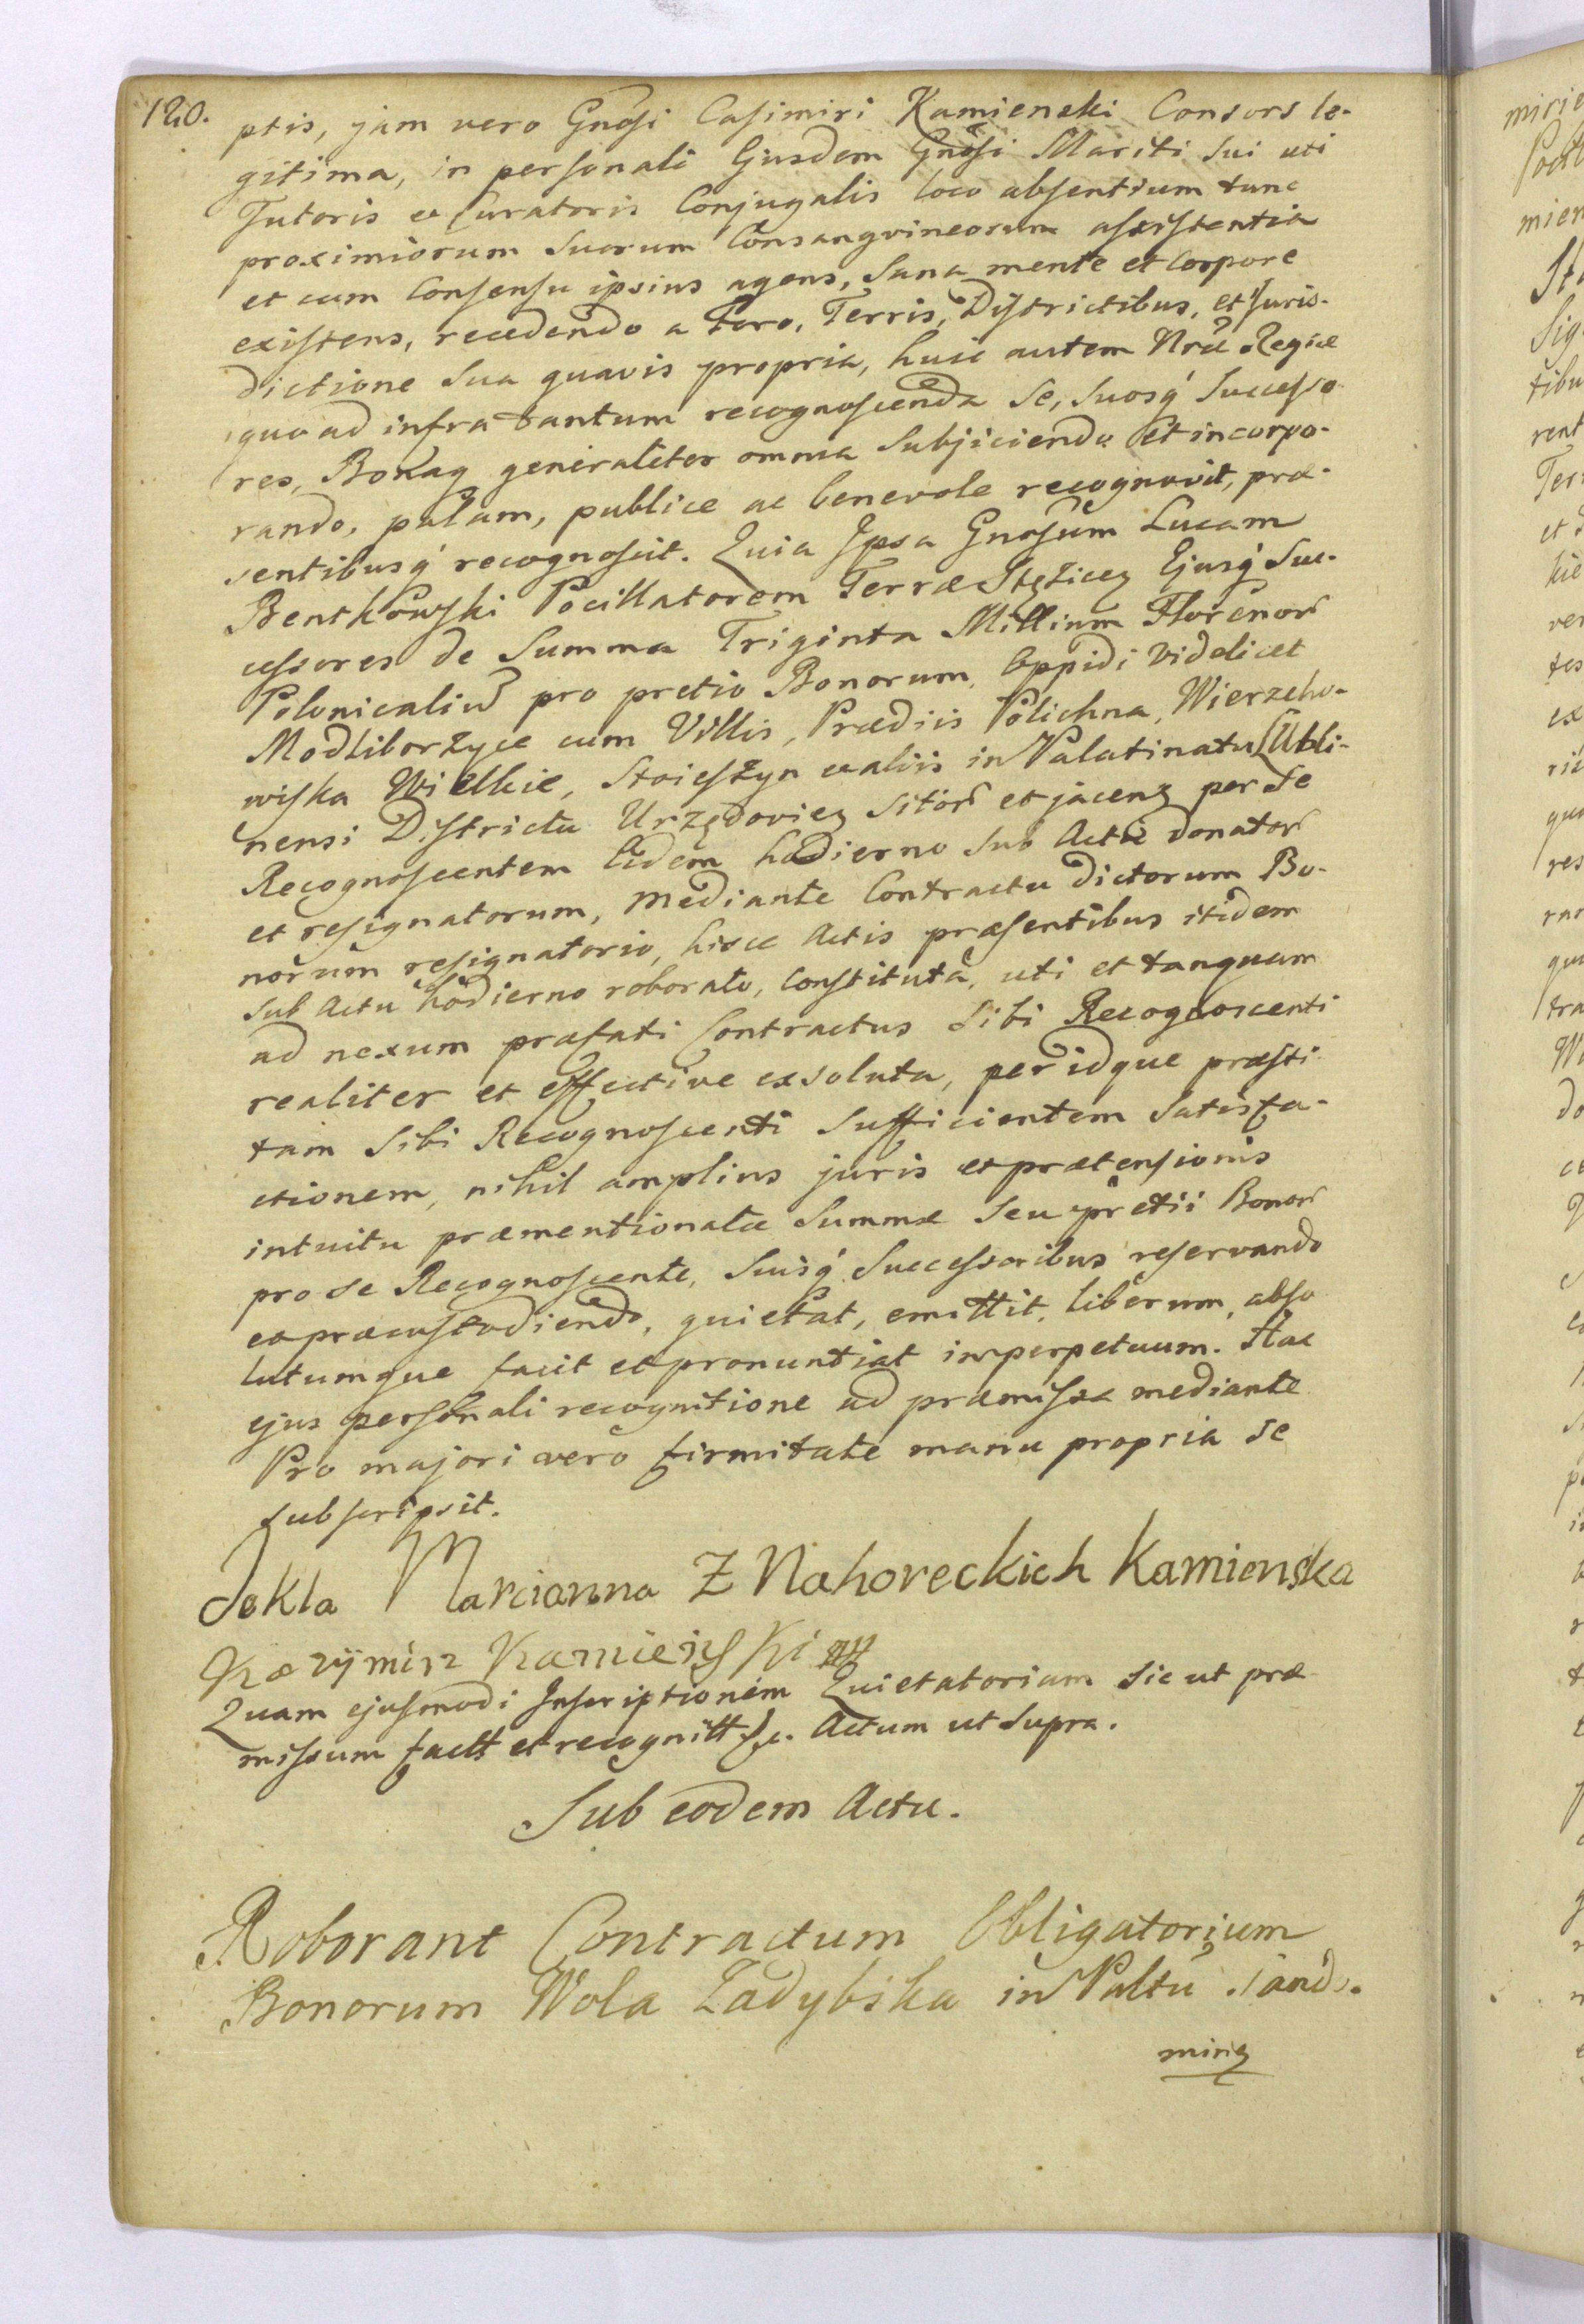 120.
ptis, jam vero Gnosi Casimiri Kamienski Consors le-
gitima, in personali Ejusdem Gnosi Mariti sui uti
Tutoris et Curatoris Conjugalis loco absentium tunc
proximiorum suorum Consangvineorum assistentia
et cum Consensu ipsius agens, sana mente et corpore
existens, recedendo a Foro, Terris, Districtibus, et Juris-
dictione sua quavis propria, huic autem Nræ Regiæ
quo ad infra tantum recognoscenda se, suosq́ Successo
res, Bonaq generaliter omnia subjiciendo et incorpo-
rando, palam, publice ac benevole recognovit, præ-
sentibusq́ recognoscit. Quia Ipsa Gnosum Lucam
Bentkowski Pocillatorem Terræ Stęzicen Ejusq́ Suc-
cessores de Summa Triginta Millium Florenor
Polonicaliu pro pretio Bonorum, Oppidi videlicet
Modliborzyce cum Villis, Prædiis Polichna, Wierzcho-
wiska Wielkie, Stoieszyn et aliis in Palatinatu Lubli-
nensi Districtu Urzędovien sitor et jacen per se
Recognoscentem Eidem hodierno sub Actu donator
et resignatorum, mediante Contractu dictorum Bo-
norum resignatorio, hisce Actis præsentibus itidem
sub Actu hodierno roborato, constituta, uti et tanquam
ad nexum præfati Contractus sibi Recognoscenti
realiter et effective exsoluta, per idque præsti
tam sibi Recognoscenti sufficientem satisfa-
ctionem, nihil amplius juris et prætensionis
intuitu præmentionatæ Summæ seu pretii Bonor
pro se Recognoscente, suisq́ Successoribus reservando
et præcustodiendo, quietat, emittit, liberum, abso
lutumque facit et pronuntiat in perpetuum. Hac
ejus personali recognitione ad præmissa mediante
Pro majori vero firmitate manu propria se
subscripsit.
Tekla Marcianna Z Nahoreckich Kamienska
Kazÿmirz Kamieński mp
Quam ejusmodi Inscriptionem Quietatoriam sic ut præ
missum factt et recognitt &c. Actum ut supra.
Sub eodem Actu.
Roborant Contractum Obligatorium
Bonorum Wola Zadybska in Palttu Sando.
mirien